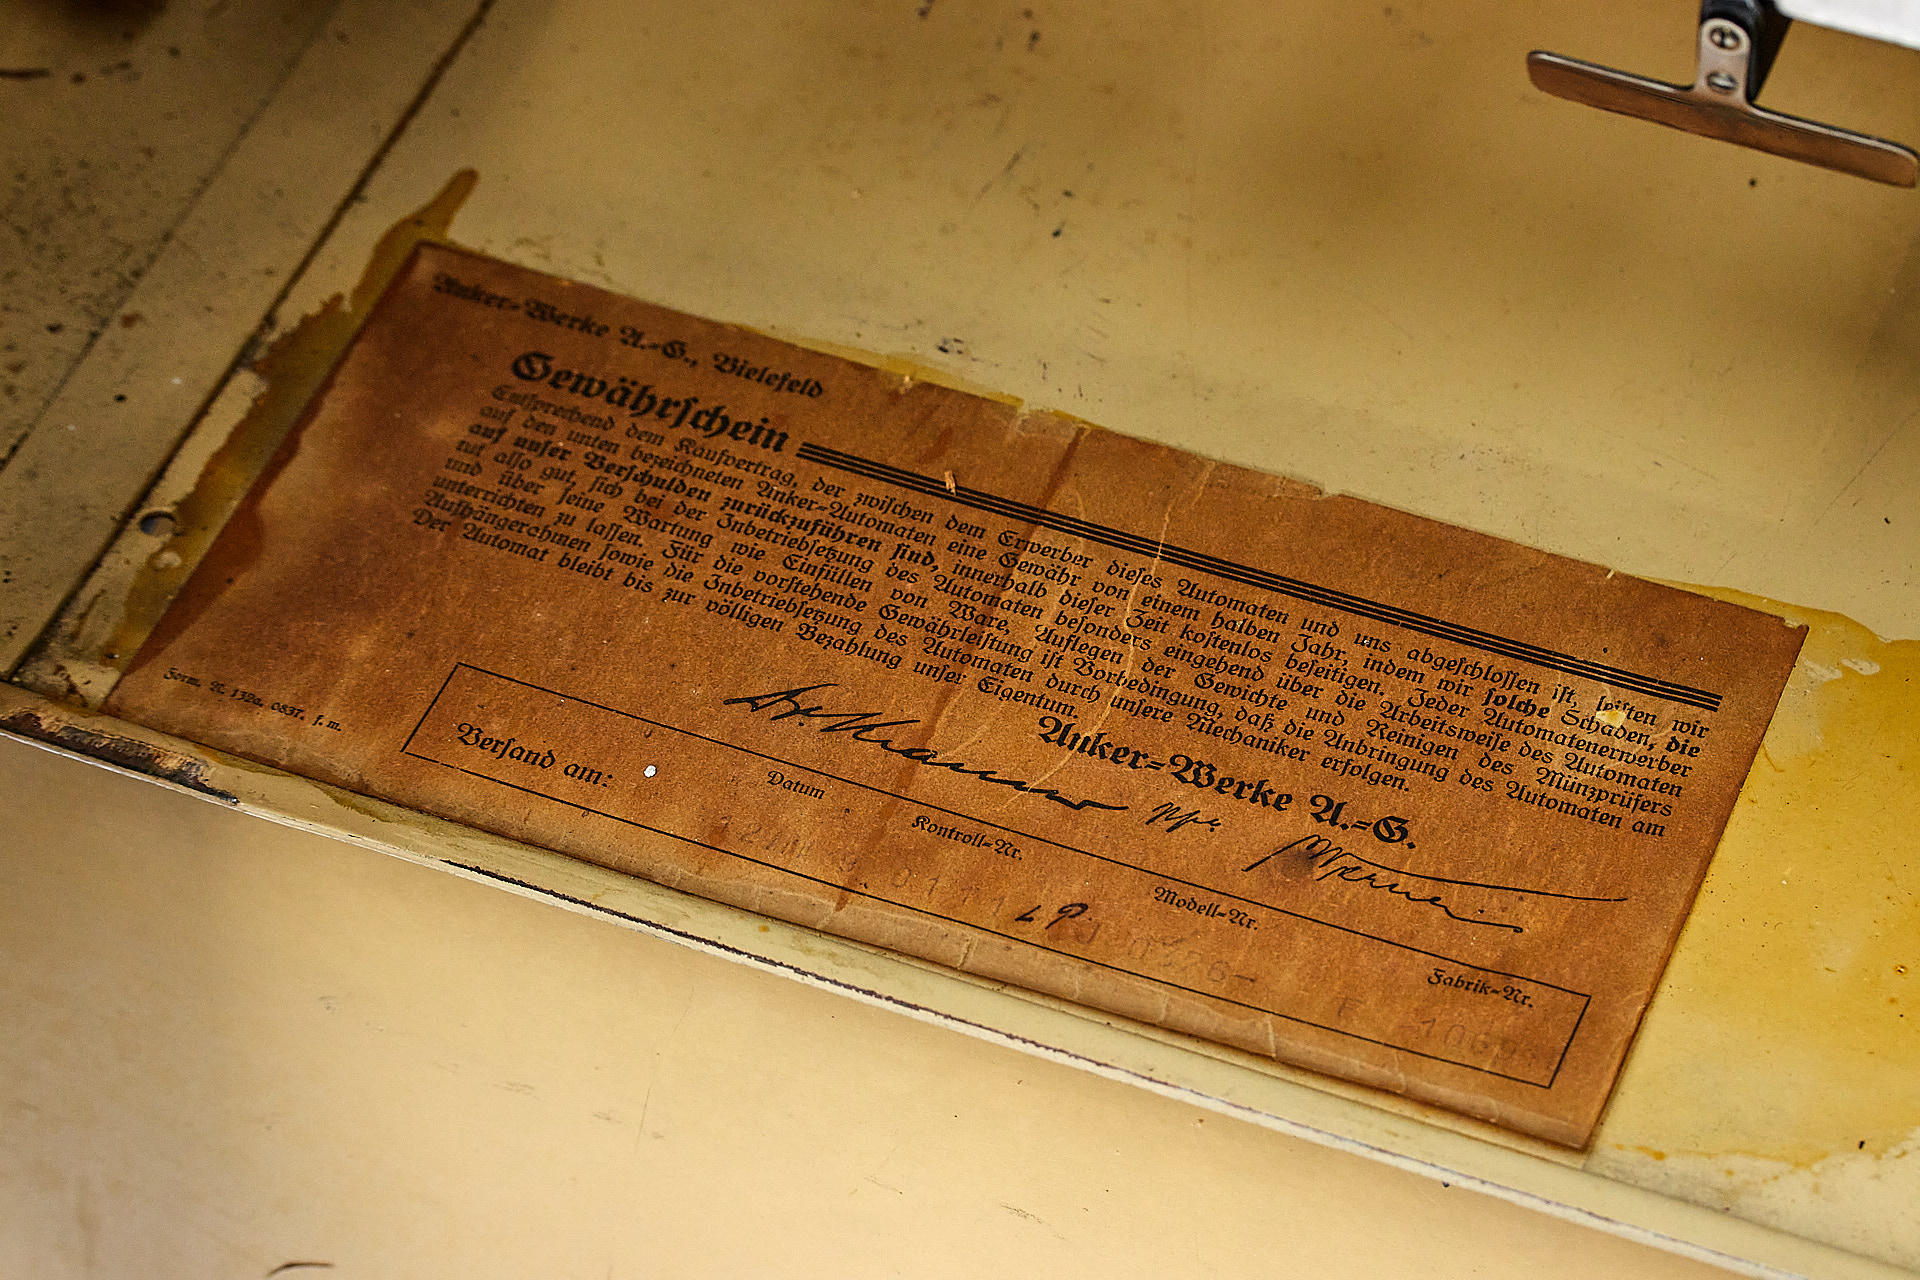 Anker-Werke A.-G., Bielefeld
Gewährschein
Entsprechend dem Kaufvertrag, der zwischen dem Erwerber dieses Automaten und uns abgeschlossen ist, leisten wir
auf den unten bezeichneten Anker-Automaten eine Gewähr von einem halben Jahr, indem wir solche Schaden, die
auf unser Verschulden zurückzuführen sind, innerhalb dieser Zeit kostenlos beseitigen. Jeder Automatenerwerber
tut also gut, sich bei der Inbetriebsetzung des Automaten besonders eingehend über die Arbeitsweise des Automaten
und über seine Wartung wie Einfüllen von Ware, Auflegen der Gewichte und Reinigen des Münzprüfers
unterrichten zu lassen. Für die vorstehende Gewährleistung ist Vorbedingung, daß die Anbringung des Automaten am
Aufhängerahmen sowie die Inbetriebsetzung des Automaten durch unsere Mechaniker erfolgen.
Der Automat bleibt bis zur völligen Bezahlung unser Eigentum.
Anker-Werke A.-G.
ppa.
Form. N. 132a. 0837. f. m.
Versand am:
Datum
Kontroll-Nr.
Modell-Nr.
Fabrik-Nr.